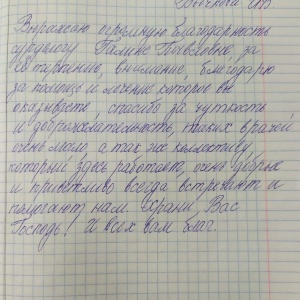 Выражаю огромную благодарность
сурдологу Полине Павловне за
её терпение, внимание, благодарю
за помощь и лечение которое вы
оказываете, спасибо за чуткость
и доброжелательность, таких врачей
очень мало, а так же коллективу
который здесь работает, очень добрые
и приветливо всегда встречают и
помогают нам. Храни Вас
Господь! И всех вам благ.